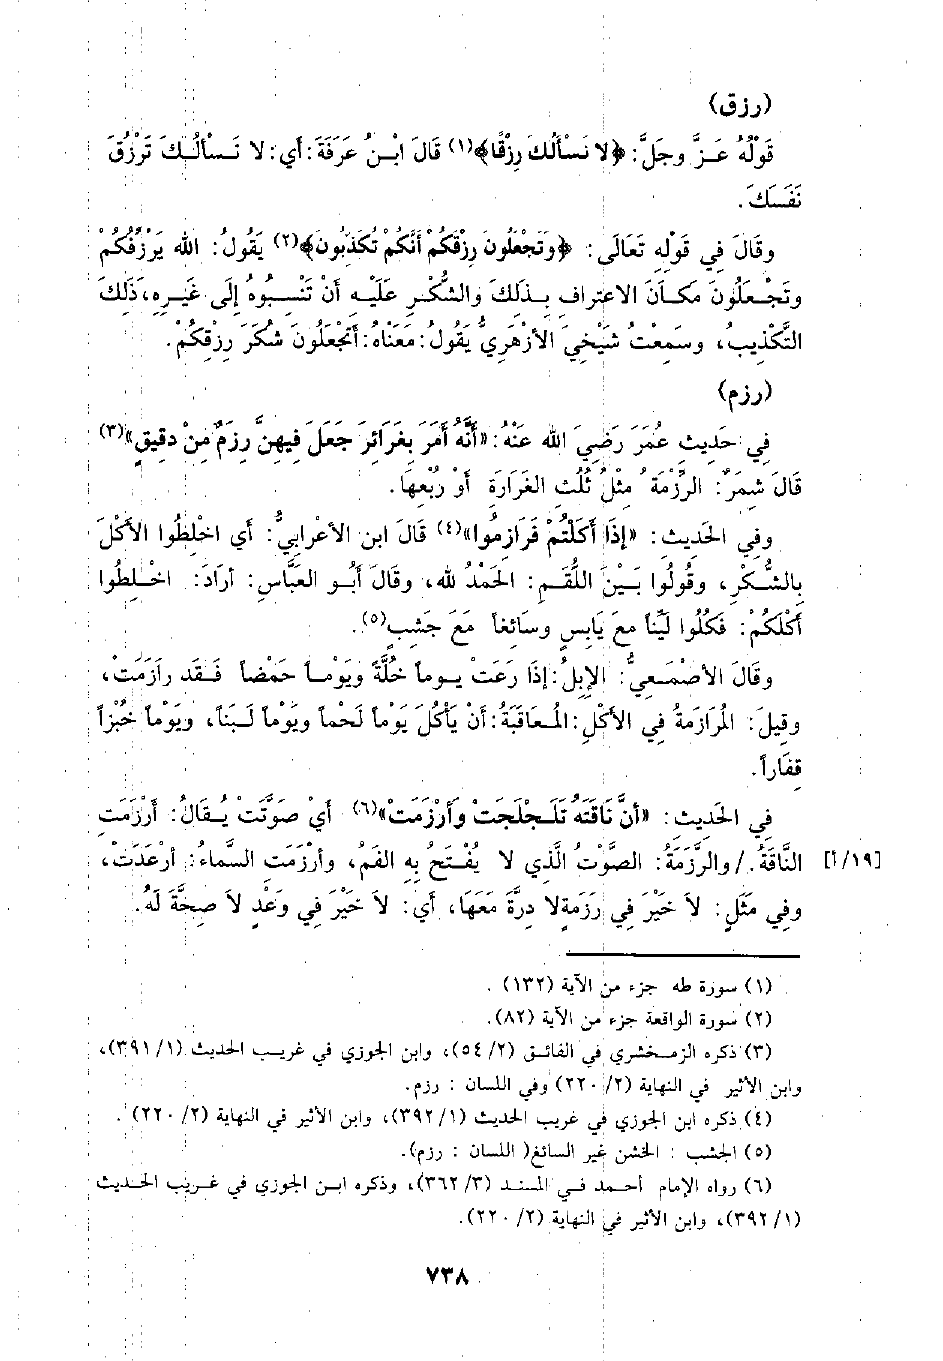 (رزق)
قَوْلُهُ عَزَّ وجَلَّ: ﴿لا نَسْأَلُكَ رِزْقًا﴾(١) قَالَ ابْنُ عَرَفَةَ: أي: لا نَسأَلُكَ تَرْزُقَ
نَفَسكَ.
وقَالَ في قَوْلِه تَعَالَى: ﴿وَتَجْعَلُونَ رِزْقَكُمْ أَنَّكُمْ تُكَذِّبُونَ﴾(٢) يَقُولُ: الله يَرْزُقُكُمْ
وتَجْعَلُونَ مَكَانَ الاعتراف بِذلكَ والشُّكْرِ عَلَيْهِ أَنْ تَنْسِبُوهُ إلَى غَيرِه، ذَلكَ
التَّكْذيبُ، وسَمعْتُ شَيْخيَ الأزْهَريَّ يَقُولُ: مَعْنَاهُ: أتَجْعَلُونَ شُكْرَ رِزْقِكُمْ.
(رزم)
في حَديث عُمَرَ رَضيَ الله عَنْهُ: «أَنَّهُ أَمَرَ بغَرائرَ جَعَلَ فيهنَّ رِزَمٌ مِنْ دقيقٍ»(٣)
قَالَ شمَرٌ: الرِّزْمَةُ مثْلُ ثُلُث الغَرَارَة أوْ رُبْعهَا.
وفي الحَديث: «إذَا أَكَلْتُمْ فَرَازِمُوا»(٤) قَالَ ابن الأعْرابيُّ: أي اخْلطُوا الأكْلَ
بالشُّكْرِ، وقُولُوا بَيْنَ اللُّقَمِ: الحَمْدُ لله، وقَالَ أبُو العَبَّاسِ: أرَادَ: اخْلطُوا
أكْلَكُمْ: فَكُلُوا لَيِّناً معَ يَابسٍ وسَائغاً مَعَ جَشبٍ(٥).
وقَالَ الأصْمَعيُّ: الإبلُ: إذَا رَعَتْ يوماً خُلَّةً ويَوْماً حَمْضاً فَقَد رازَمَتْ،
وقيلَ: المُرَازَمةُ في الأكْلِ: المُعَاقَبَةُ: أنْ يَأكُلَ يَوْماً لَحْماً ويَوْماً لَبَناً، ويَوْماً خُبْزاً
قفَاراً.
في الحَديث: «أنَّ نَاقَتَهُ تَلَجْلَجَتْ وَأرْزَمَتْ»(٦) أيْ صَوَّتَتْ يُقَالُ: أرْزَمَت
النَّاقَةُ. /والرَّزَمَةُ: الصَّوْتُ الَّذي لا يُفْتَحُ به الفَمُ، وأرْزَمَت السَّماءُ: أرْعَدَتْ، [١٩/أ]
وفي مَثَلٍ: لاَ خَيْرَ في رَزَمَةٍ لا درَّةَ مَعَهَا، أي: لاَ خَيْرَ في وَعْدٍ لاَ صحَّةَ لَهُ.
(١) سورة طه جزء من الآية (١٣٢).
(٢) سورة الواقعة جزء من الآية (٨٢).
(٣) ذكره الزمخشري في الفائق (٢/ ٥٤)، وابن الجوزي في غريب الحديث (١/ ٣٩١)،
وابن الأثير في النهاية (٢/ ٢٢٠) وفي اللسان : رزم.
(٤) ذكره ابن الجوزي في غريب الحديث (١/ ٣٩٢)، وابن الأثير في النهاية (٢/ ٢٢٠).
(٥) الجشب : الخشن غير السائغ( اللسان : رزم).
(٦) رواه الإمام أحمد في المسند (٣/ ٣٦٢)، وذكره ابن الجوزي في غريب الحديث
(١/ ٣٩٢)، وابن الأثير في النهاية (٢/ ٢٢٠).
٧٣٨